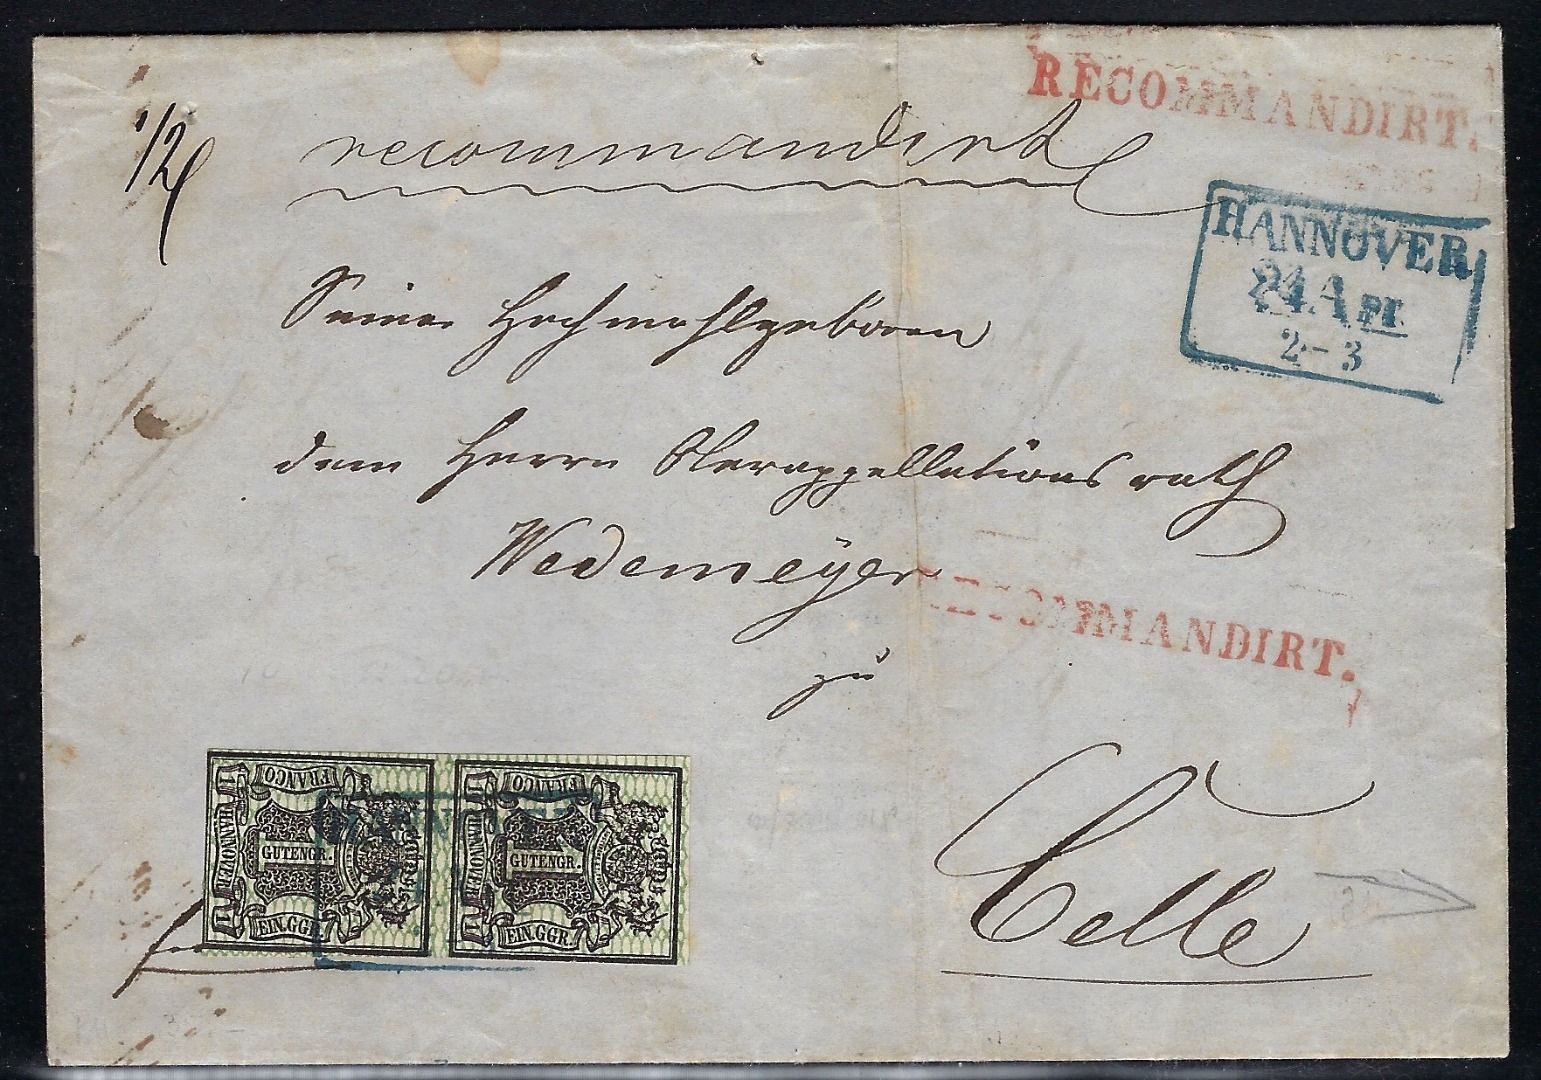 RECOMMANDIRT.
1/2
recommandirt
HANNOVER
24 Apr.
2-3
Seiner Hochwohlgeboren
dem Herrn Oberappellationsrath
Wedemeÿer
RECOMMANDIRT.
zu
Celle
FRANCO
HANNOVER
1
GUTENGR.
EIN.GGR.
FRANCO
HANNOVER
1
GUTENGR.
EIN.GGR.